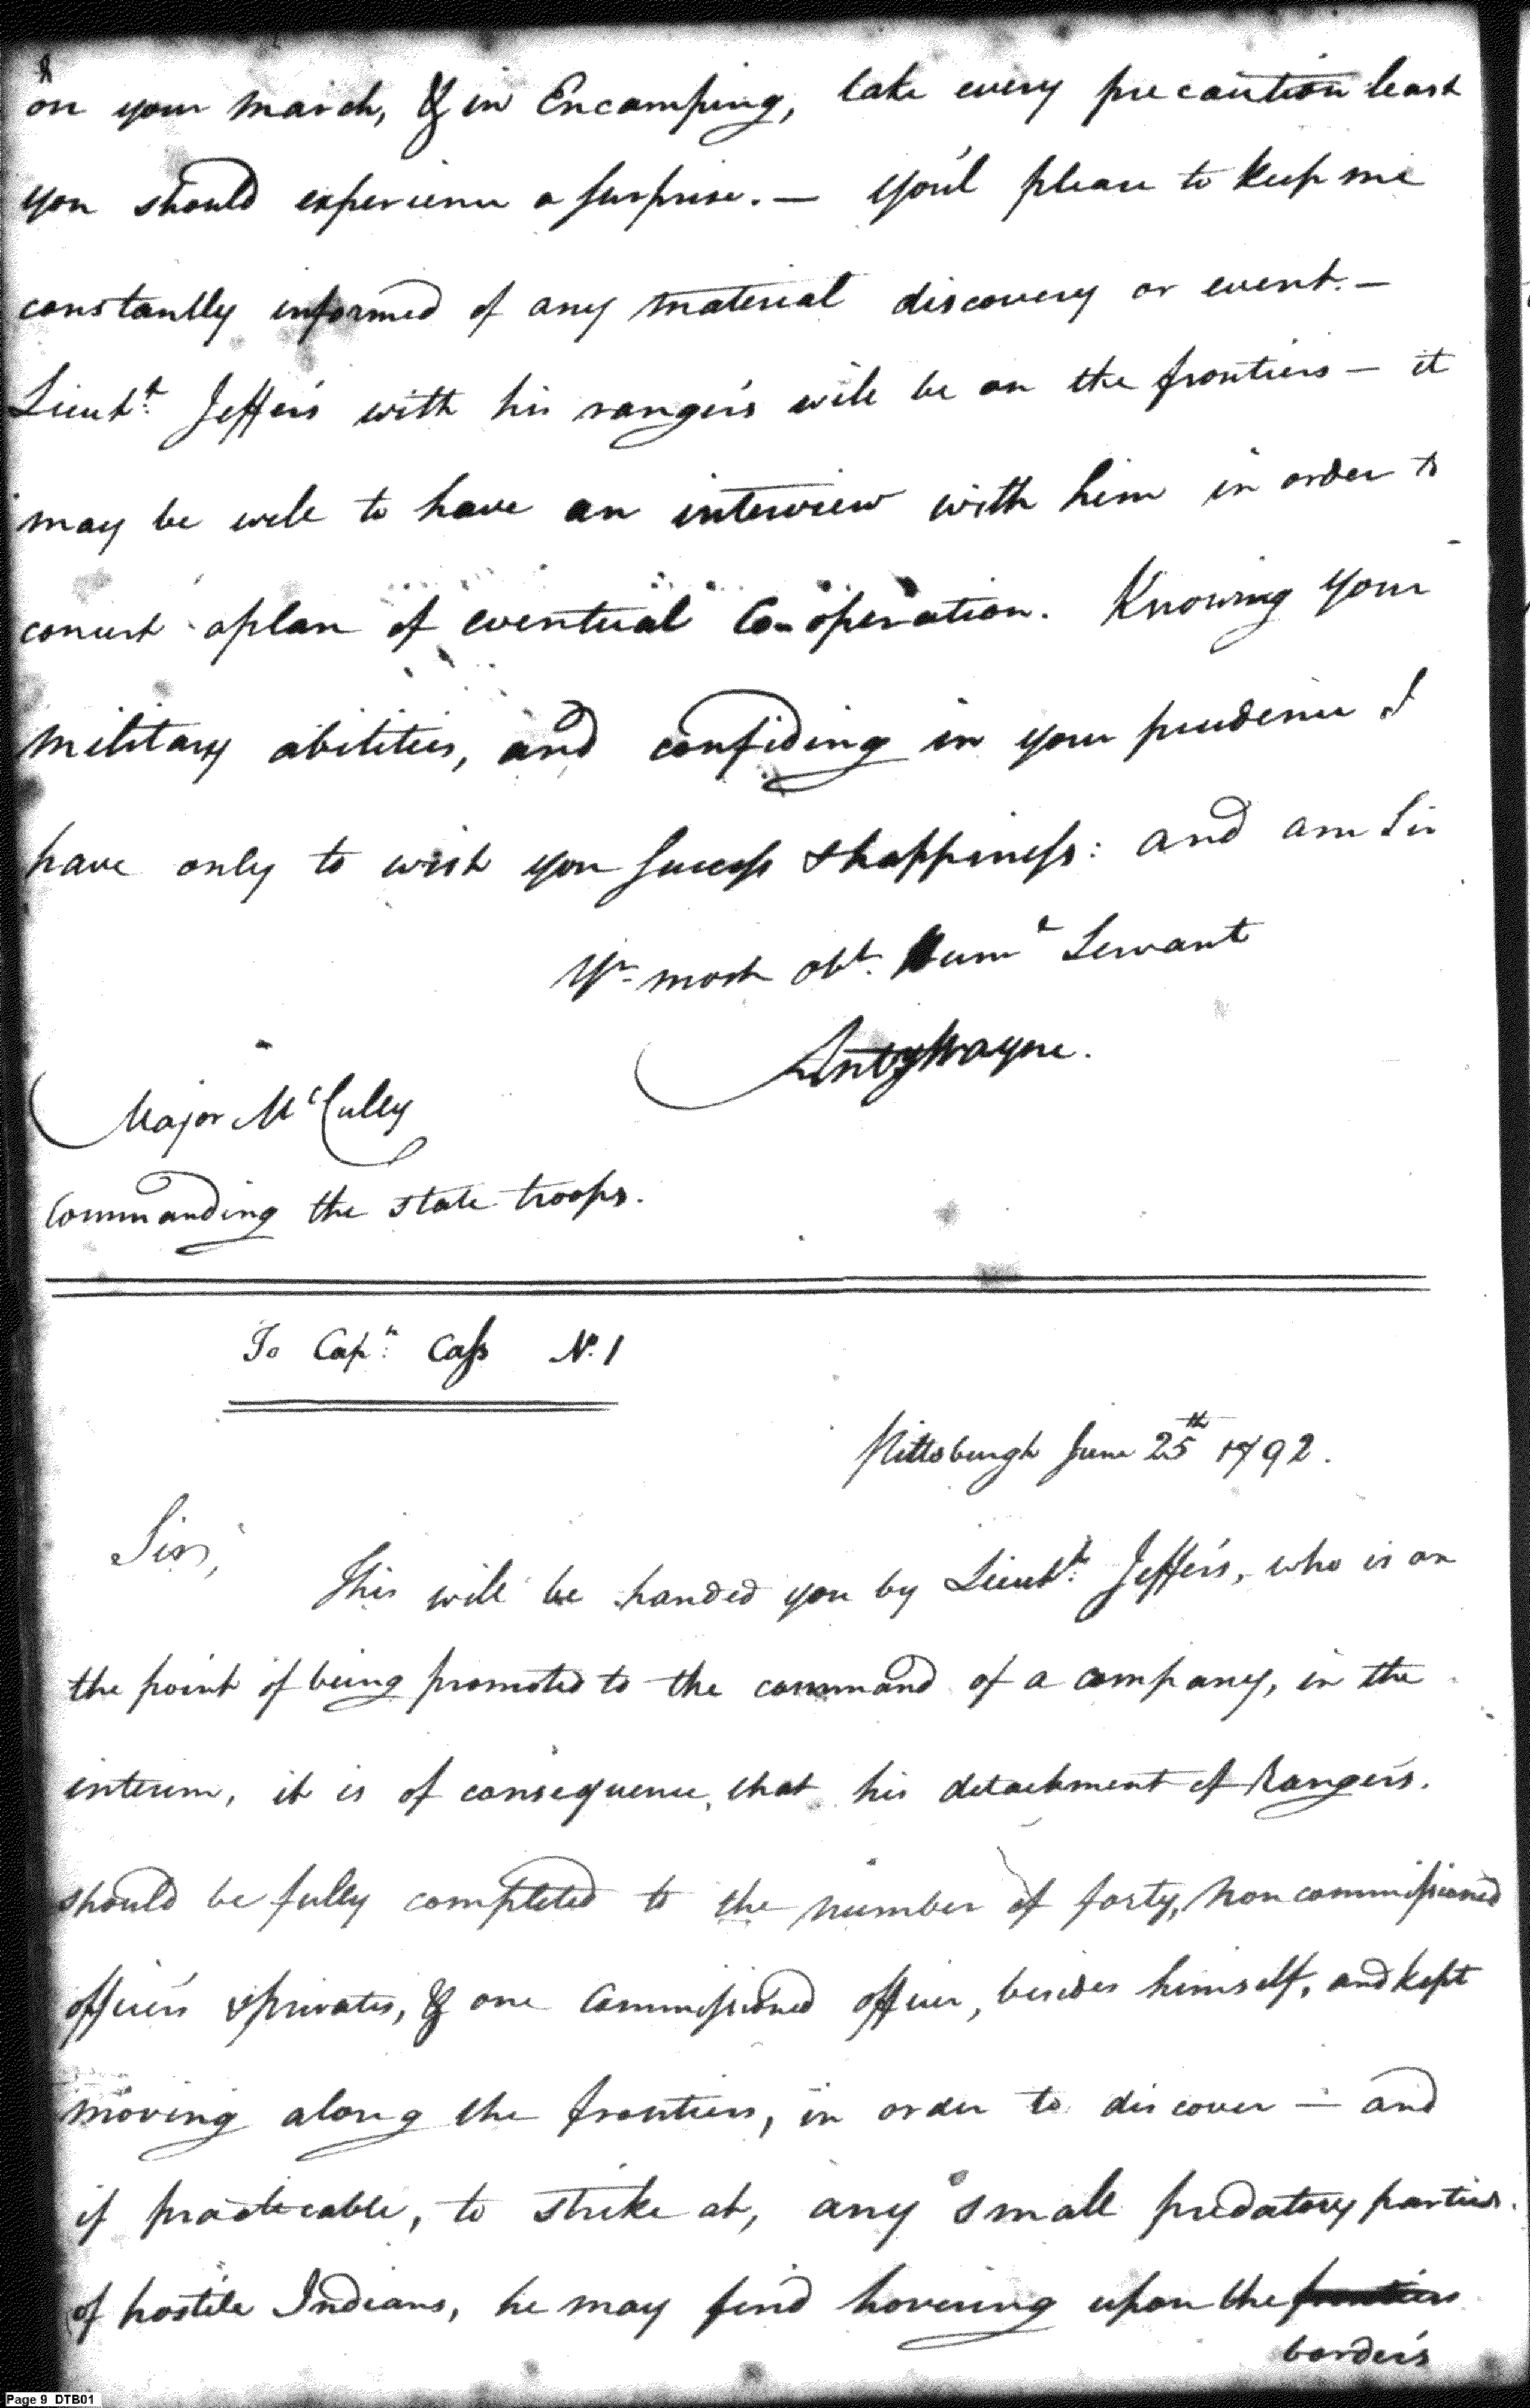 8
on your march, & in Encamping, take every precaution least
you should experience a surprise. — You'l please to keep me
constantly informed of any material discovery or event. —
Lieutt. Jeffers with his rangers will be on the frontiers — it
may be well to have an interview with him in order to
concert a plan of eventual Co-operation. Knowing your
military abilities, and confiding in your prudence I
have only to wish you success & happiness: and am Sir
Yr. most obt. Humle Servant
Anty Wayne.
Major McCulley
Commanding the state troops.
To Capn. Cass No. 1
Pittsburgh June 25th 1792.
Sir,
This will be handed you by Lieutt. Jeffers, who is on
the point of being promoted to the command of a company, in the
interim, it is of consequence, that his detachment of Rangers.
should be fully completed to the number of forty, non commissioned
officers & privates, & one Commissioned officer, besides himself, and kept
moving along the frontiers, in order to discover — and
if practicable, to strike at, any small predatory parties.
of hostile Indians, he may find hovering upon the frontiers
borders
Page 9 DTB01